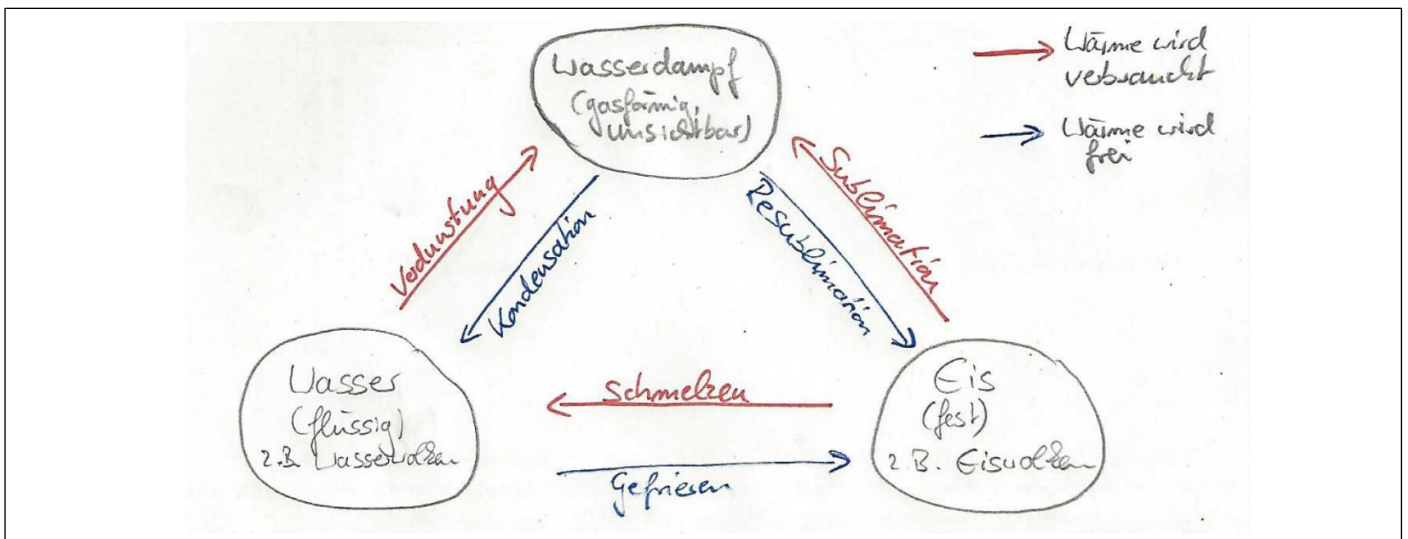 Wasserdampf
(gasförmig,
unsichtbar)
Wärme wird
verbraucht
Wärme wird
frei
Verdunstung
Kondensation
Sublimation
Resublimation
Wasser
(flüssig)
z.B. Wasserwolken
Schmelzen
Gefrieren
Eis
(fest)
z.B. Eiswolken